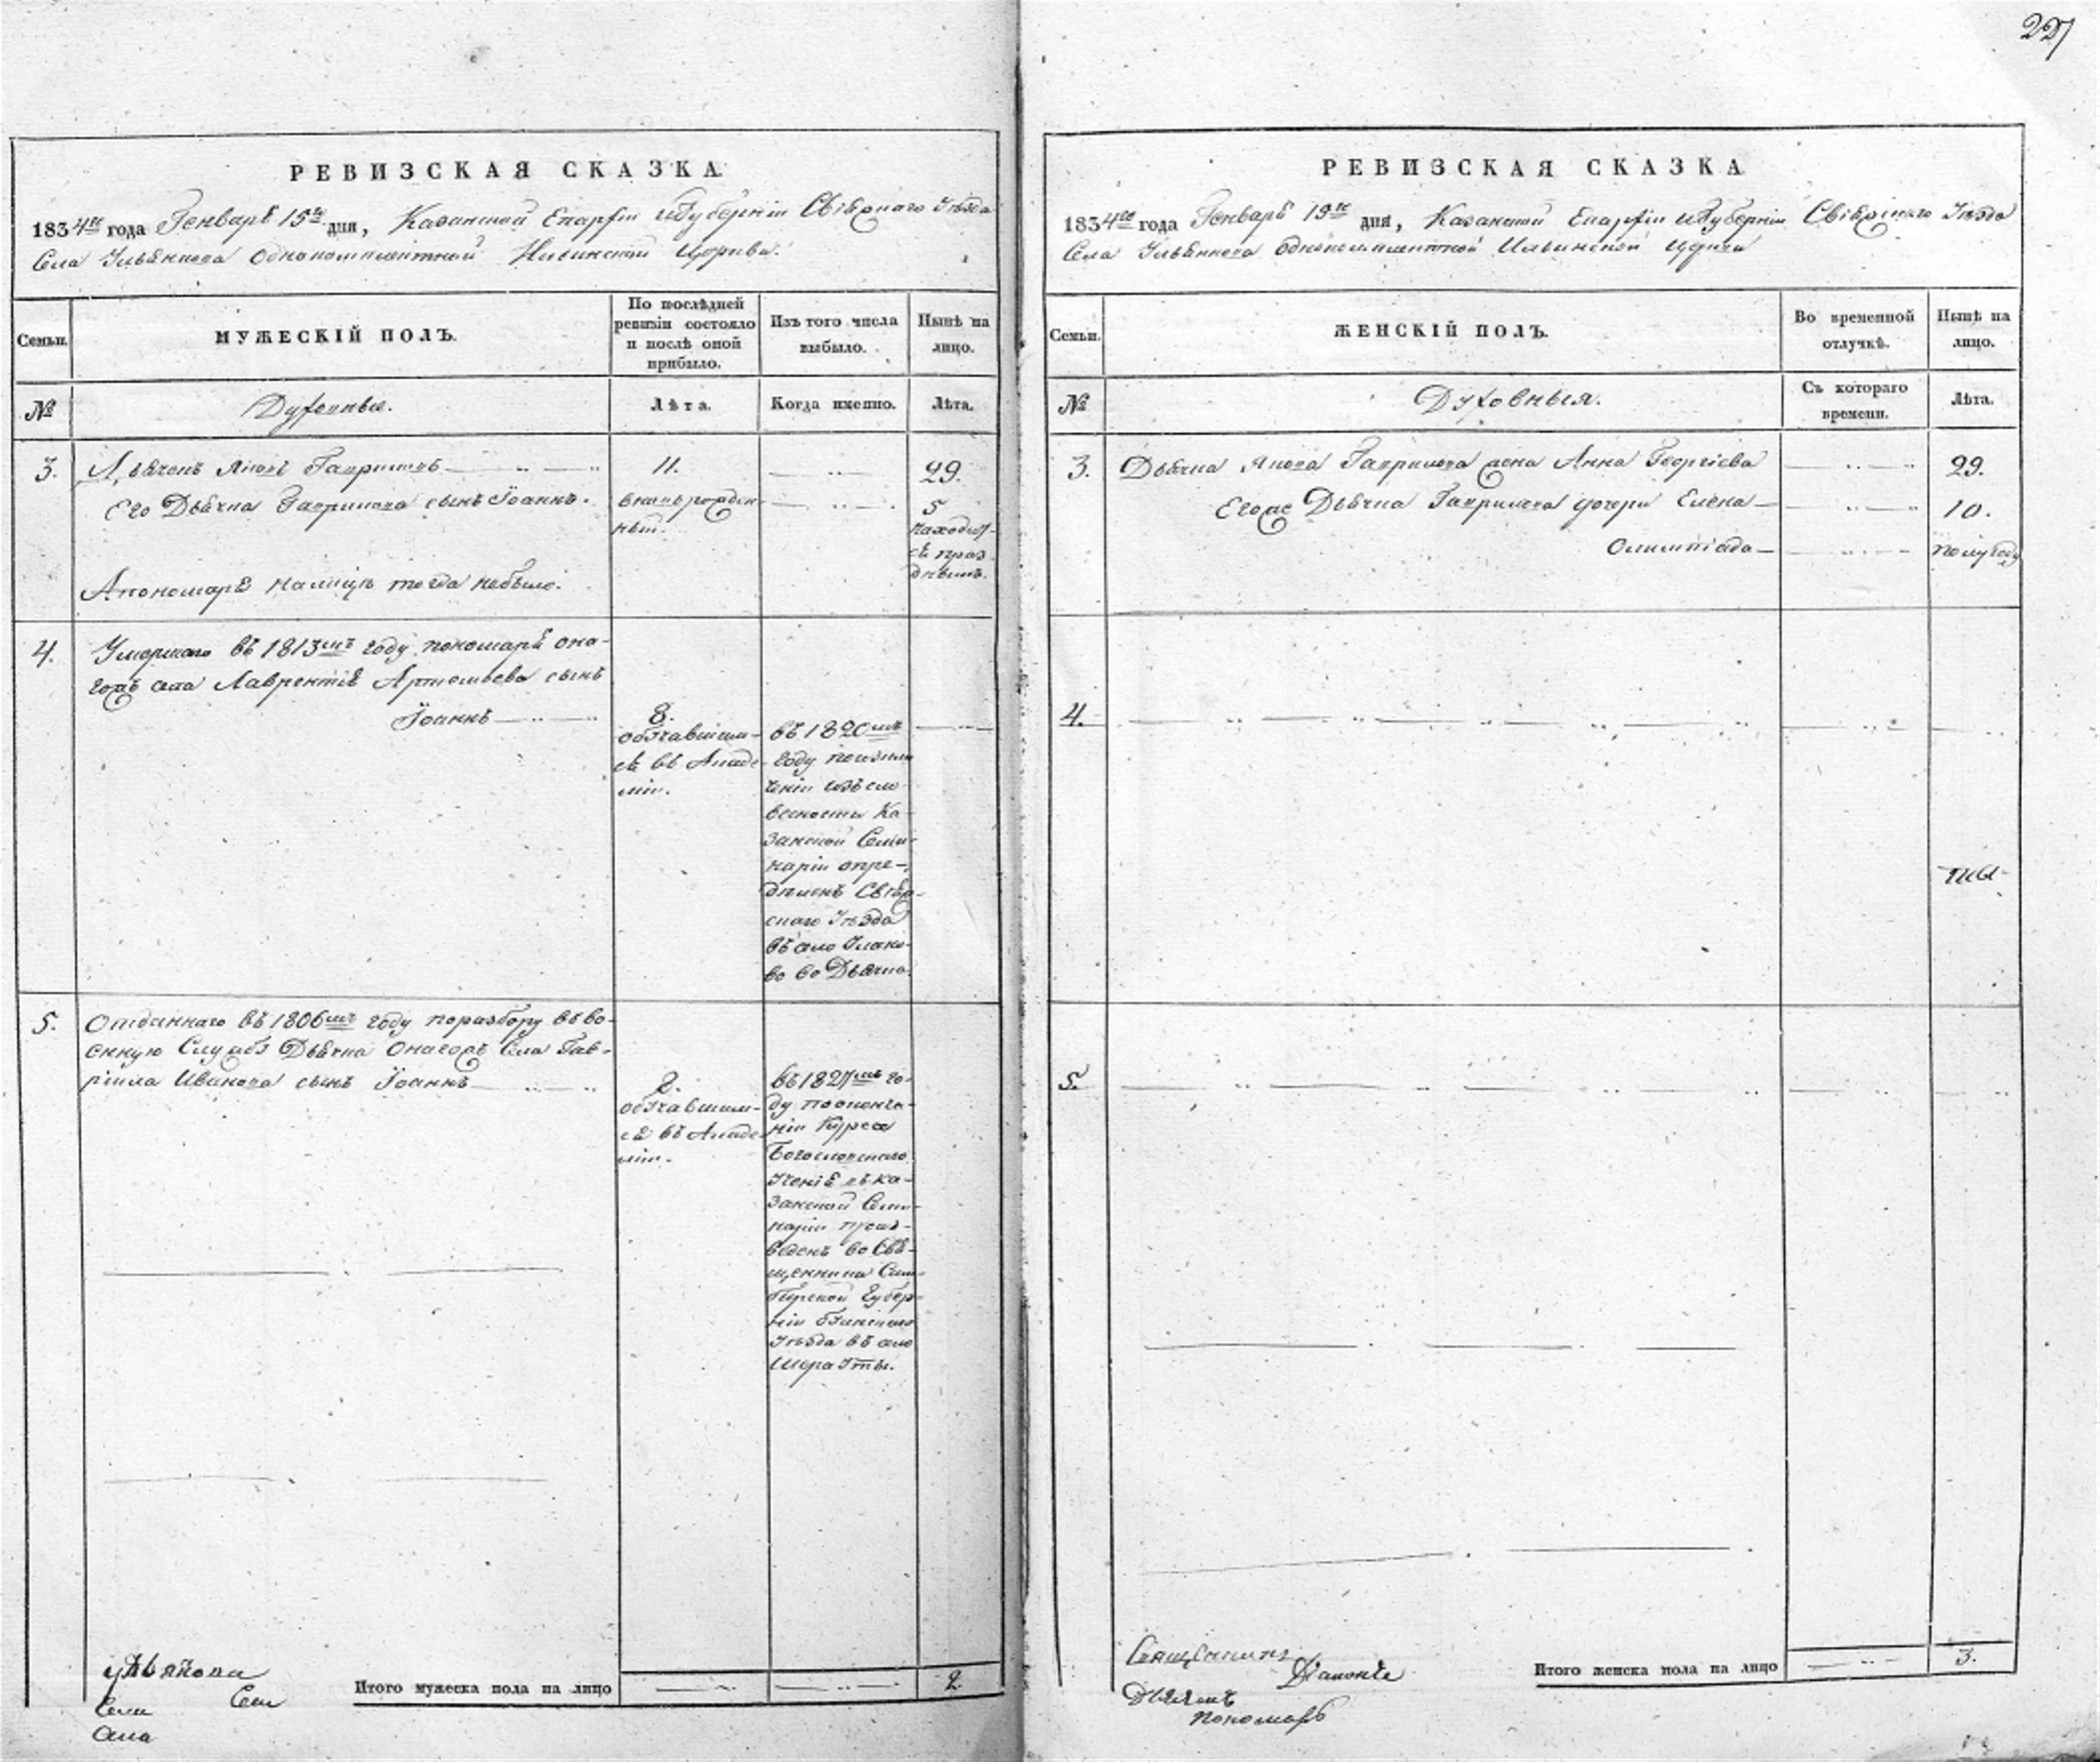 227
РЕВИЗСКАЯ СКАЗКА
1834го года Генваря 15го дня, Казанской Епархіи и Губерніи Свіяжскаго Уѣзда
Села Ульянкова однокомплектной Ильинской Церкви.
Семьи.
МУЖЕСКІЙ ПОЛЪ.
По послѣдней
ревизіи состояло
и послѣ оной
прибыло.
Изъ того числа
выбыло.
Нынѣ на
лицо.
№
Духовныя.
Лѣта.
Когда именно.
Лѣта.
3.
Дьячекъ Гавриловъ
11.
29.
Его Дьячка Гаврилова сынъ Іоаннъ.
вновь рожден-
ный.
5
находит-
ся праз-
днымъ.
Апономаря налицѣ тогда небыло.
4.
Умершаго въ 1813мъ году пономаря она-
гожъ села Лаврентія Артемьева сынъ
Іоаннъ
8.
обучавшим-
ся въ Акаде-
міи.
въ 1820мъ
году по
ченіи изъ сло-
весности Ка-
занской Семи-
наріи опре-
дѣленъ Свіяж-
скаго Уѣзда
въ село
во во Дьячка.
5.
Отданнаго въ 1806мъ году поразбору въ во-
енную Службу Дьячка Онагожъ Села Гав-
ріила Иванова сынъ Іоаннъ
8.
обучавшим-
ся въ Акаде-
міи.
въ 1827мъ го-
ду пооконча-
ніи Курса
Богословскаго
Ученія въ Ка-
занской Семи-
наріи произ-
веденъ во Свя-
щенника Сим-
бирской Губер-
ніи Буинскаго
Уѣзда въ село
Шерауты.
Ульянкова
Села
Села
Села
Итого мужеска пола на лицо
2.
РЕВИЗСКАЯ СКАЗКА
1834го года Генваря 15го дня, Казанской Епархіи и Губерніи Свіяжскаго Уѣзда
Села Ульянкова однокомплектной Ильинской Церкви
Семьи.
ЖЕНСКІЙ ПОЛЪ.
Во временной
отлучкѣ.
Нынѣ на
лицо.
№
Духовныя.
Съ котораго
времени.
Лѣта.
3.
Дьячка Гаврилова жена Анна Георгіева
29.
Егожъ Дьячка Гаврилова дочери Елена
10.
Олимпіада
полугоду
4.
5.
Священникъ
Діаконъ
Дьячекъ
пономарь
Итого женска пола на лицо
3.